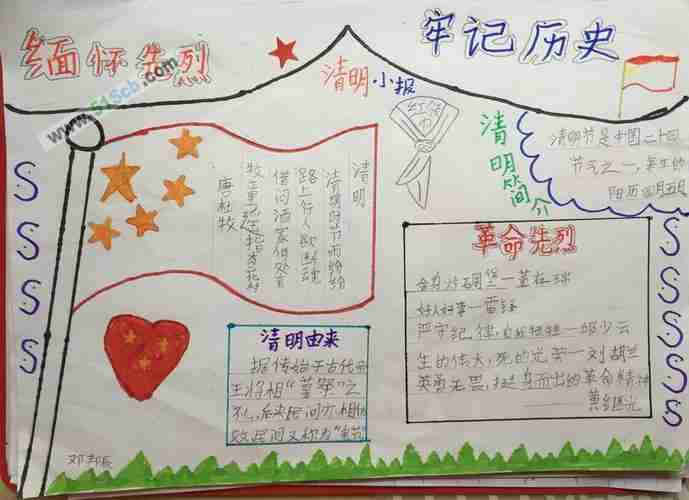 缅怀先烈
牢记历史
清明小报
www.51Scb.com
红领
巾
清明简介
清明节是中国二十四
节气之一,每年的
阳历四月五日
清明
清明时节雨纷纷
路上行人欲断魂
借问酒家何处有
牧童遥指杏花村
唐杜牧
革命先烈
舍身炸碉堡一董存瑞
好人好事一雷锋
严守纪律,邱少云
生的伟大,死的光荣一刘胡兰
英勇无畏,挺身而出的革命精神
黄继光
清明由来
据传始于古代帝
王将相“墓祭”之
礼,后来民间亦相仿
效民间又称为
邓